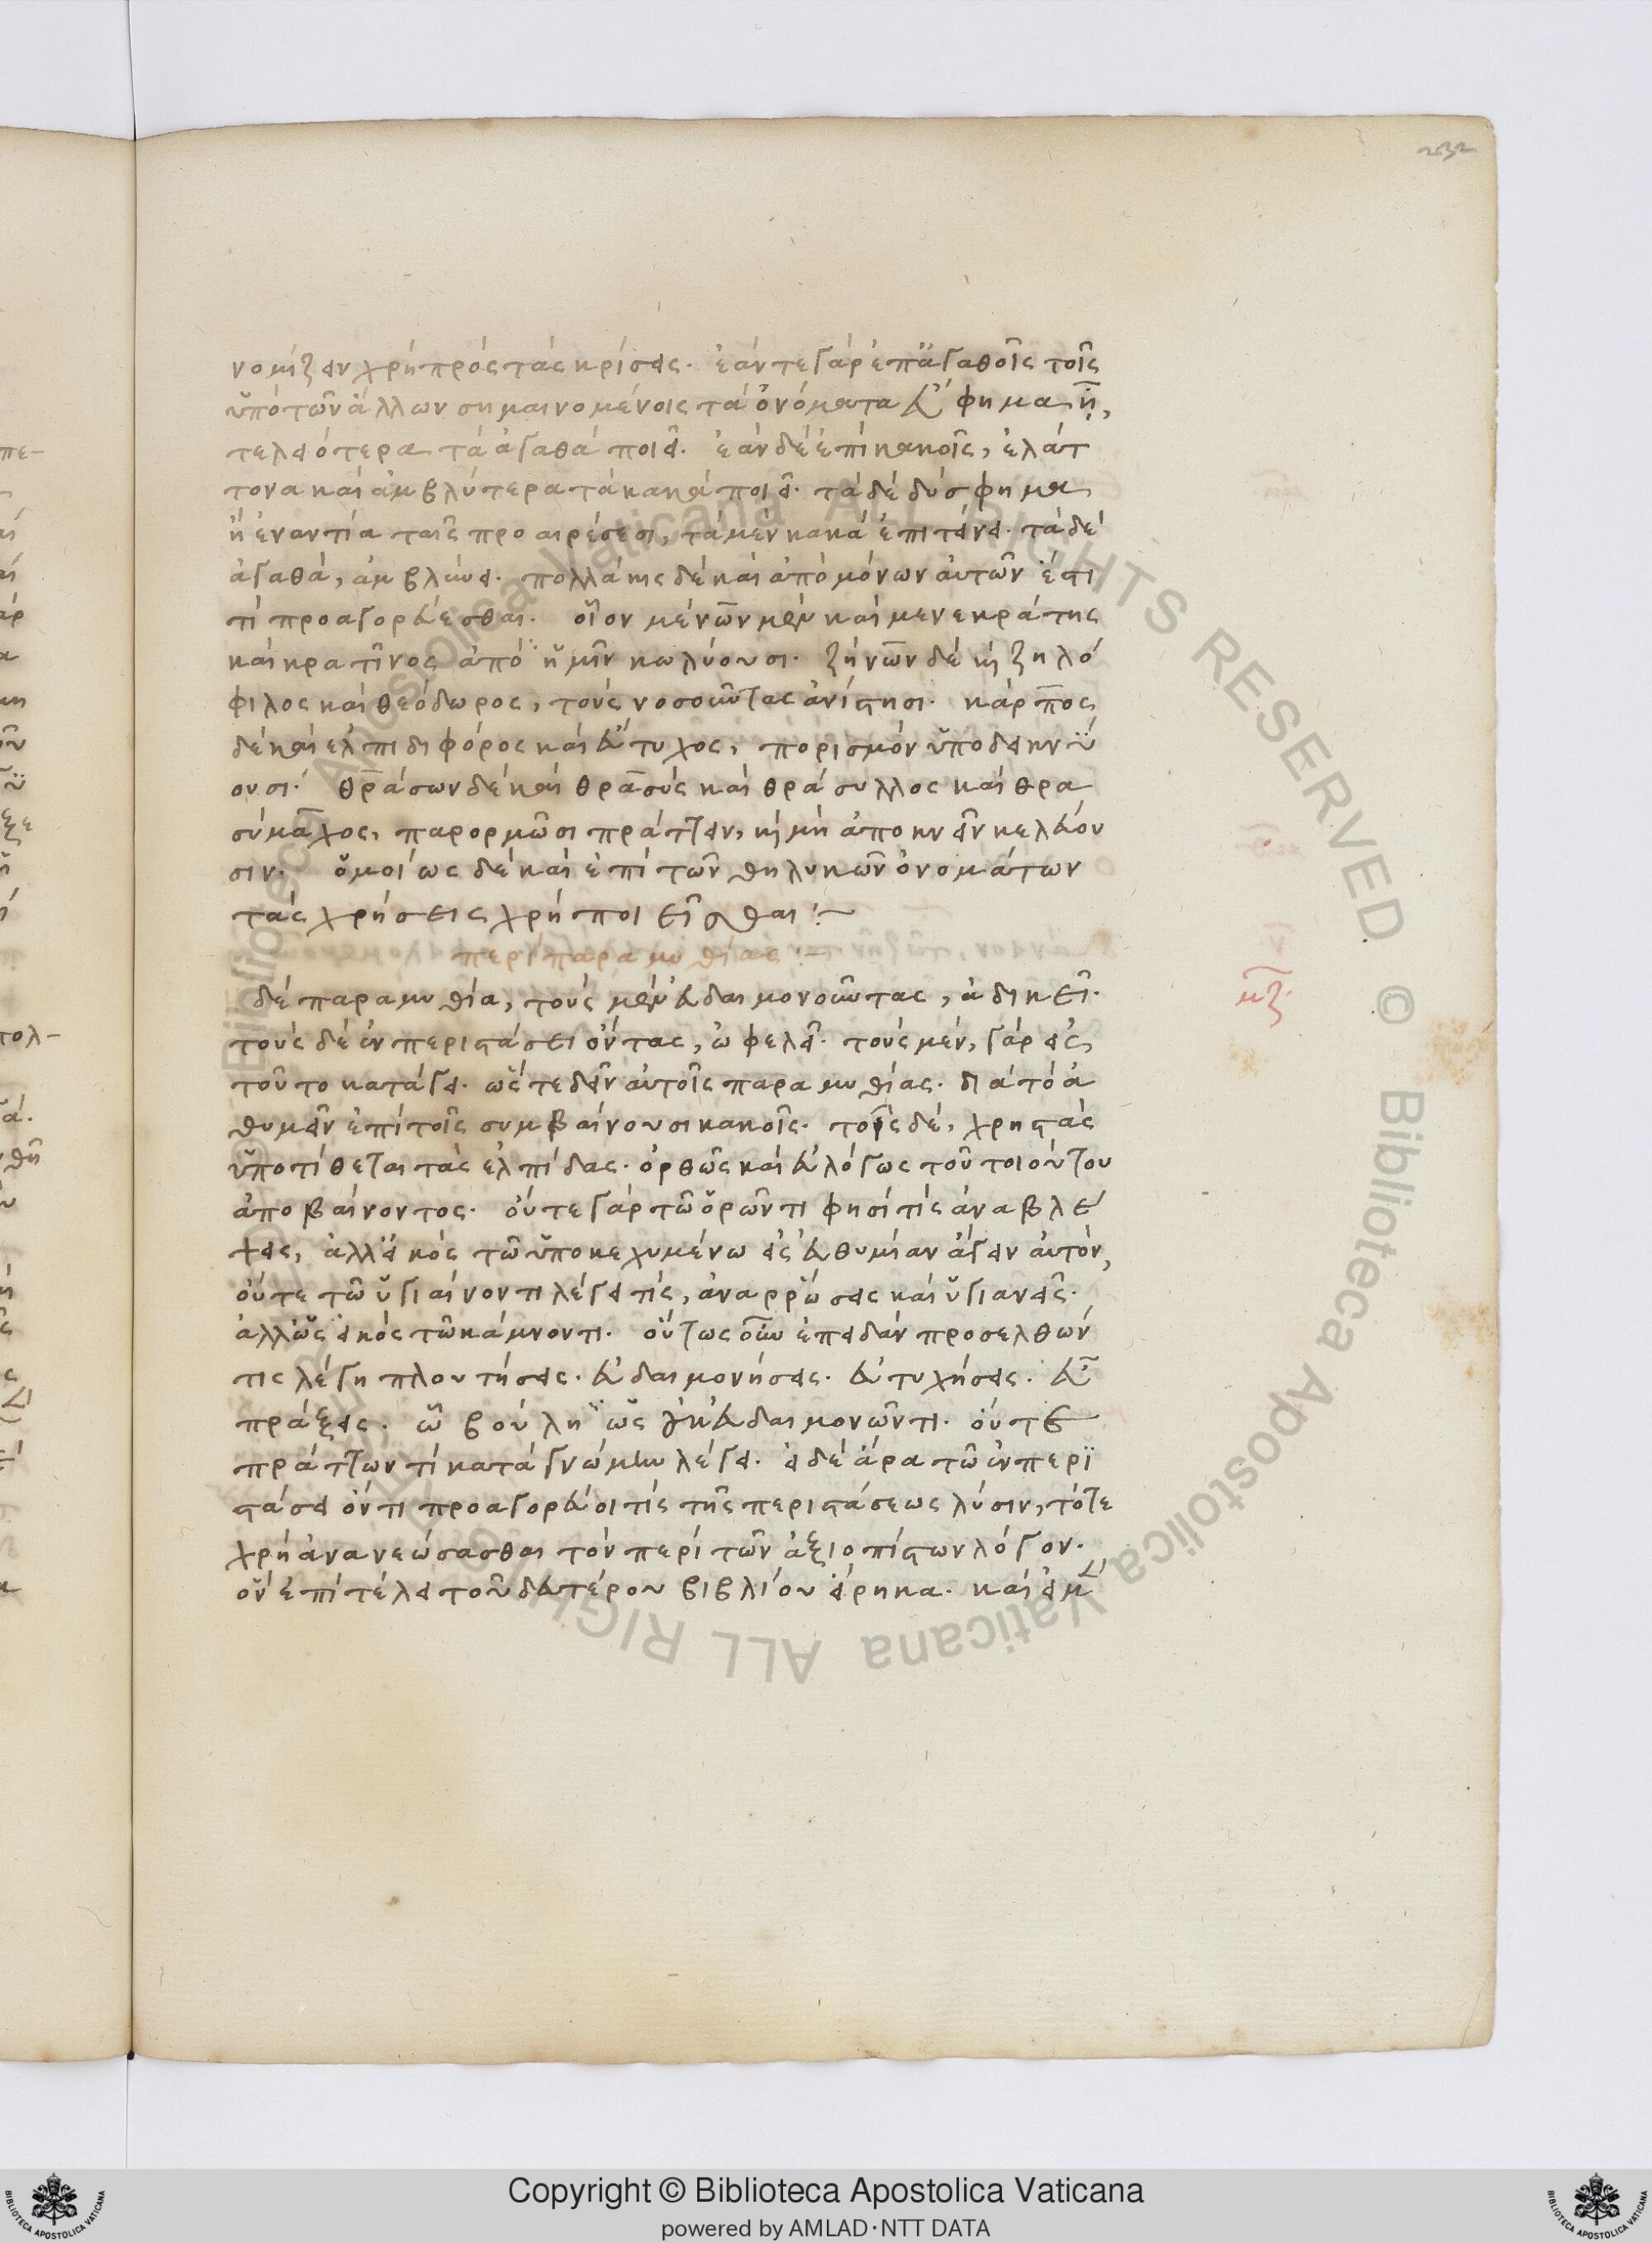 232
νομίζειν χρὴ πρὸς τὰς κρίσεις. ἐάν τε γὰρ ἐπ' ἀγαθοῖς τοῖς
ὑπὸ τῶν ἄλλων σημαινομένοις τὰ ὀνόματα εὔφημα ἦ,
τελειότερα τὰ ἀγαθὰ ποιεῖ. ἐὰν δὲ ἐπὶ κακοῖς, ἐλάτ
τονα καὶ ἀμβλύτερα τὰ κακὰ ποιεῖ. τὰ δὲ δύσφημα
ἢ ἐναντία ταῖς προαιρέσεσι, τὰ μὲν κακὰ ἐπιτείνει. τὰ δὲ
ἀγαθά, ἀμβλύνει. πολλάκις δὲ καὶ ἀπὸ μόνων αὐτῶν ἔστι
τὶ προαγορεύεσθαι. οἷον μένων μὲν καὶ μενεκράτης
καὶ κρατῖνος ἀπο ἡμῖν κωλύουσι. ζήνων δὲ καὶ ζηλό
φιλος καὶ θεόδωρος, τοὺς νοσοῦντας ἀνίστησι. κάρπος
δὲ καὶ ἐλπιδιφόρος καὶ εὔτυχος, πορισμὸν ὑποδεικνύ
ουσι. θράσων δὲ καὶ θρασὺς καὶ θράσυλλος καὶ θρα
σύμαχος, παρορμῶσι πράττειν, καὶ μὴ ἀποκνεῖν κελεύου
σιν. ὁμοίως δὲ καὶ ἐπὶ τῶν θηλυκῶν ὀνομάτων
τὰς χρήσεις χρὴ ποιεῖσθαι :~
περὶ παραμυθίας :~
δὲ παραμυθία, τοὺς μὲν εὐδαιμονοῦντας, ἀδικεῖ.
τοὺς δὲ ἐν περιστάσει ὄντας, ὠφελεῖ. τοὺς μὲν, γὰρ εἰς
τοῦτο κατάγει. ὥστε δεῖν αὐτοῖς παραμυθίας. διὰ τὸ ἀ
θυμεῖν ἐπὶ τοῖς συμβαίνουσι κακοῖς. τοῖς δὲ, χρηστὰς
ὑποτίθεται τὰς ἐλπίδας. ὀρθῶς καὶ εὐλόγως τοῦ τοιούτου
ἀποβαίνοντος. οὔτε γὰρ τῶ ὁρῶντι φησί τίς ἀναβλέ
ψεις, ἀλλ' εἰκὸς τῶ ὑποκεχυμένω εἰς εὐθυμίαν ἄγειν αὐτόν,
οὔτε τῶ ὑγιαίνοντι λέγει τίς, ἀναρρώσεις καὶ ὑγιανεῖς.
ἀλλ' ὡς εἰκὸς τῶ κάμνοντι. οὕτως οὖν ἐπειδὰν προσελθών
τις λέγη πλουτήσεις. εὐδαιμονήσεις. εὐτυχήσεις. εὖ
πράξεις. ὧ βούλη ὡς οὐκ εὐδαιμονῶντι. οὔτε
πράττων τὶ κατὰ γνώμην λέγει. εἰ δὲ ἄρα τῶ ἐν περι
στάσει ὄντι προαγορεύοι τίς τῆς περιστάσεως λύσιν, τότε
χρὴ ἀνανεώσασθαι τὸν περὶ τῶν ἀξιοπίστων λόγον.
ὃν ἐπὶ τέλει τοῦ δευτέρου βιβλίου εἴρηκα. καὶ εἰ μὲν
μζ.
Copyright © Biblioteca Apostolica Vaticana
powered by AMLAD·NTT DATA